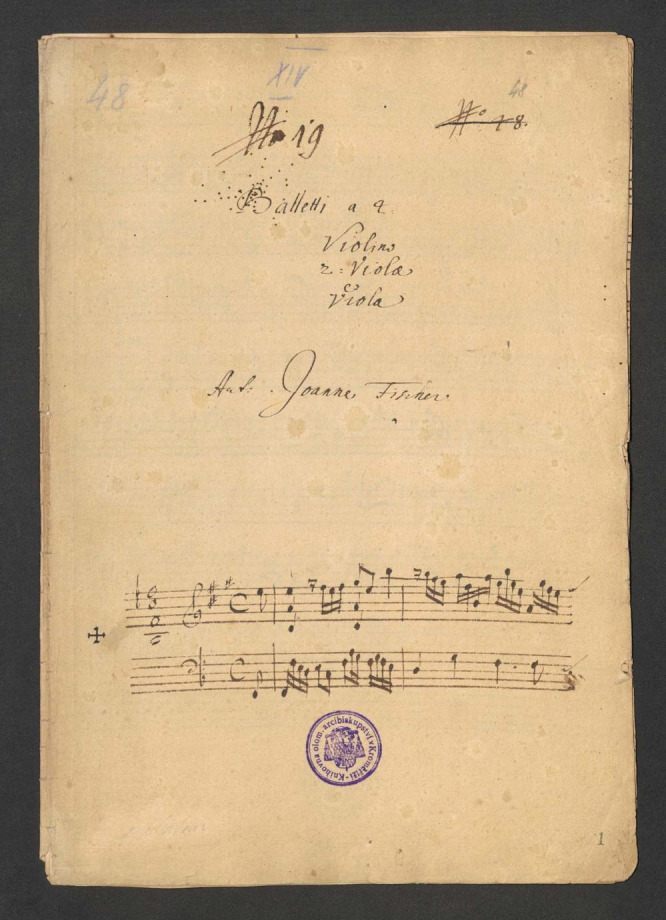 48
XIV
48
No 19
No 48.
Balletti a 4
Violino
2: Violæ
&
Viola
Aut: Joanne Fischer.
Knihovna olom. arcibiskupství v Kroměříži
1